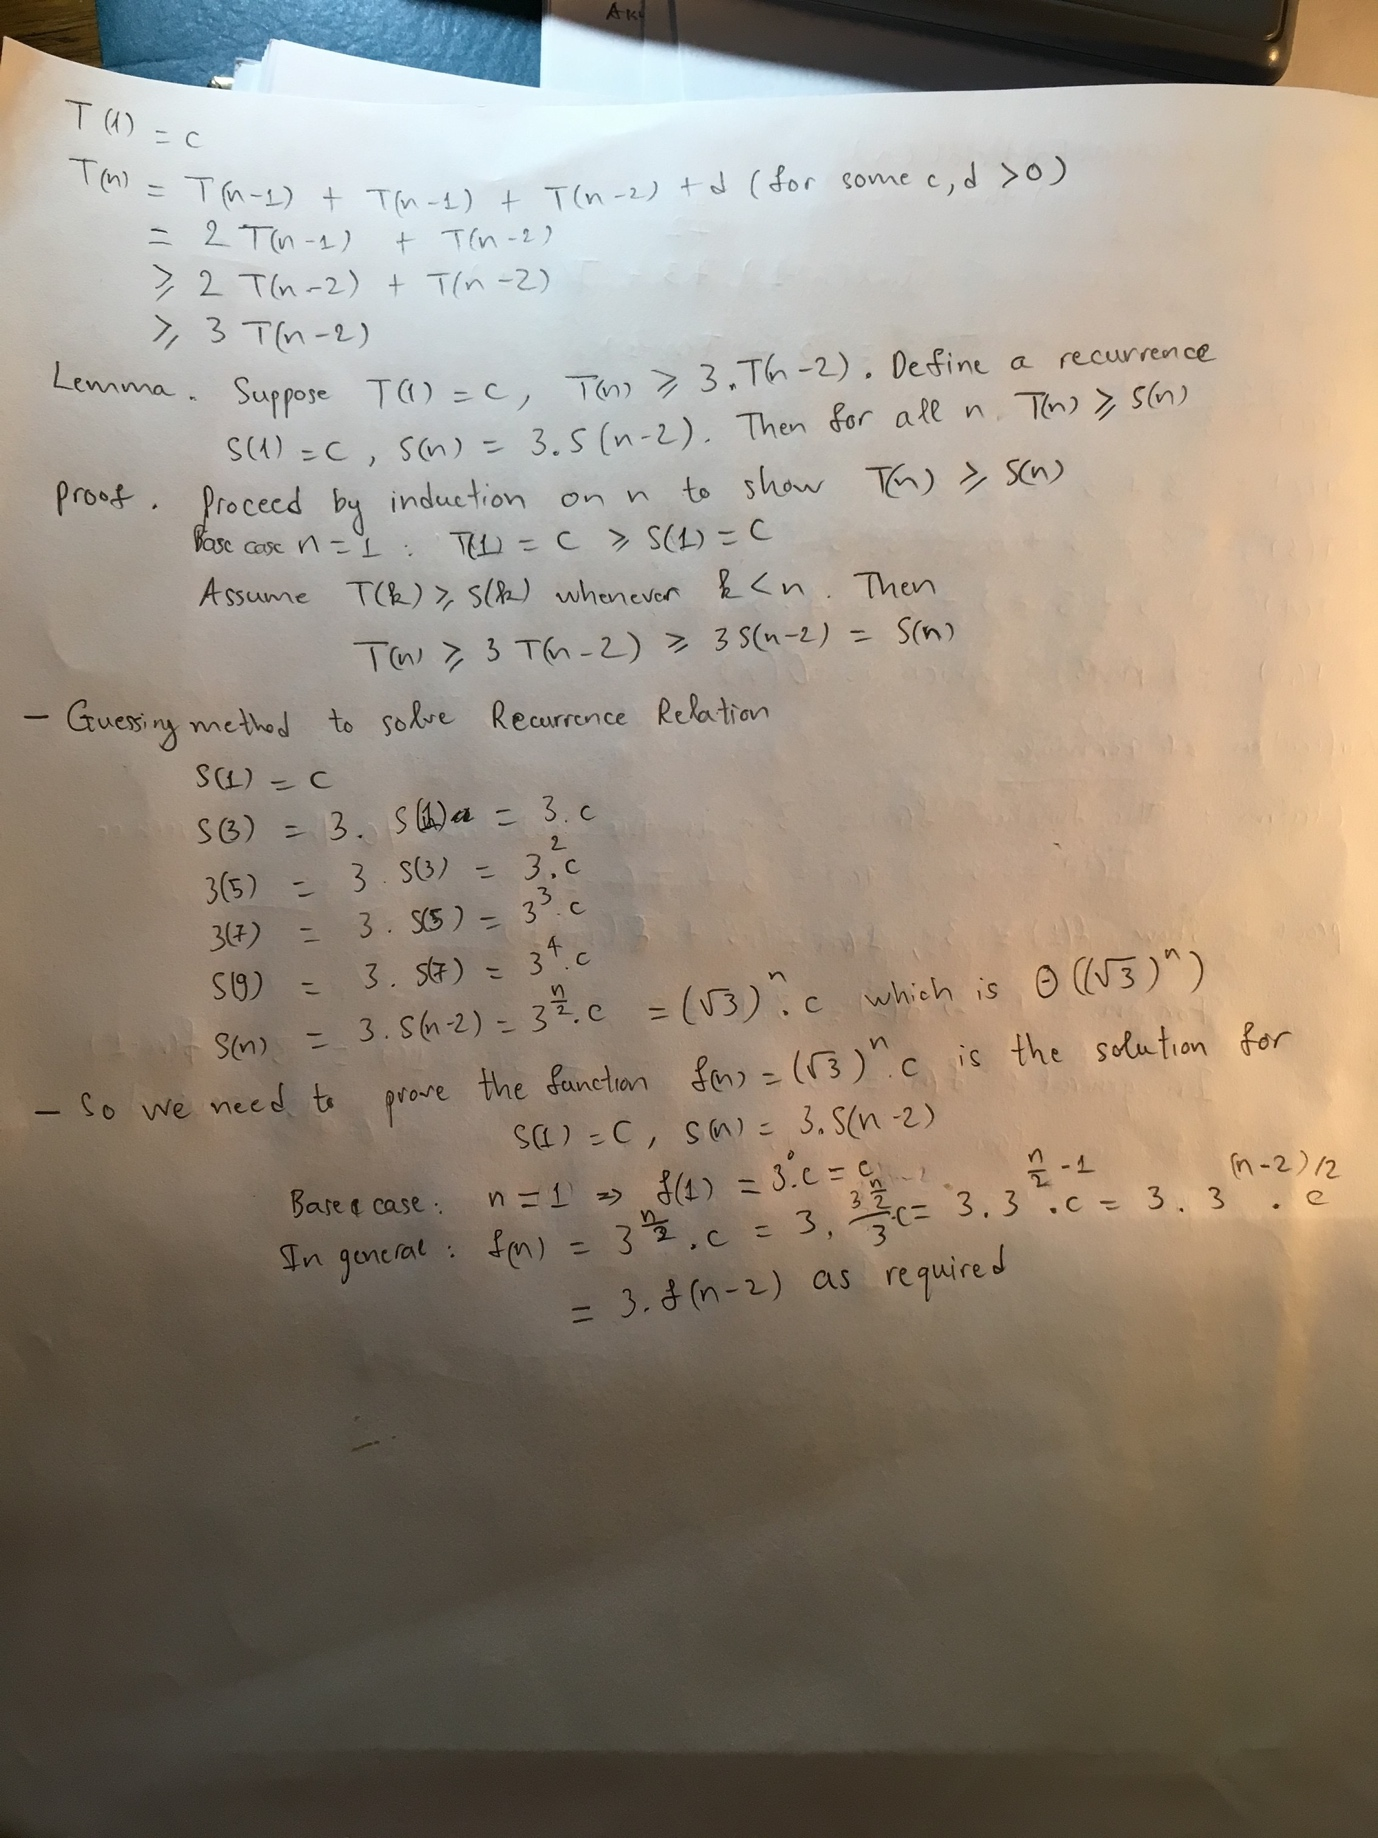 AK
T(1) = c
T(n) = T(n-1) + T(n-1) + T(n-2) + d (for some c, d >0)
= 2 T(n-1) + T(n-2)
⩾ 2 T(n-2) + T(n-2)
⩾ 3 T(n-2)
Lemma. Suppose T(1) = c, T(n) ⩾ 3.T(n-2). Define a recurrence
S(1) = c, S(n) = 3.S(n-2). Then for all n T(n) ⩾ S(n)
Proof. Proceed by induction on n to show T(n) ⩾ S(n)
Base case n = 1 : T(1) = c ⩾ S(1) = c
Assume T(k) ⩾ S(k) whenever k < n. Then
T(n) ⩾ 3 T(n-2) ⩾ 3 S(n-2) = S(n)
- Guessing method to solve Recurrence Relation
S(1) = c
S(3) = 3. S(1) = 3.c
3(5) = 3. S(3) = 3².c
3(7) = 3. S(5) = 3³.c
S(9) = 3. S(7) = 3⁴.c
S(n) = 3.S(n-2) = 3^(n/2).c = (√3)ⁿ.c which is Θ((√3)ⁿ)
- So we need to prove the function f(n) = (√3)ⁿ.c is the solution for
S(1) = c, S(n) = 3.S(n-2)
Base case: n = 1 ⇒ f(1) = 3⁰.c = c
In general : f(n) = 3^(n/2).c = 3. 3^(n/2)/3 .c = 3.3^(n/2 - 1).c = 3. 3^((n-2)/2) . c
= 3.f(n-2) as required